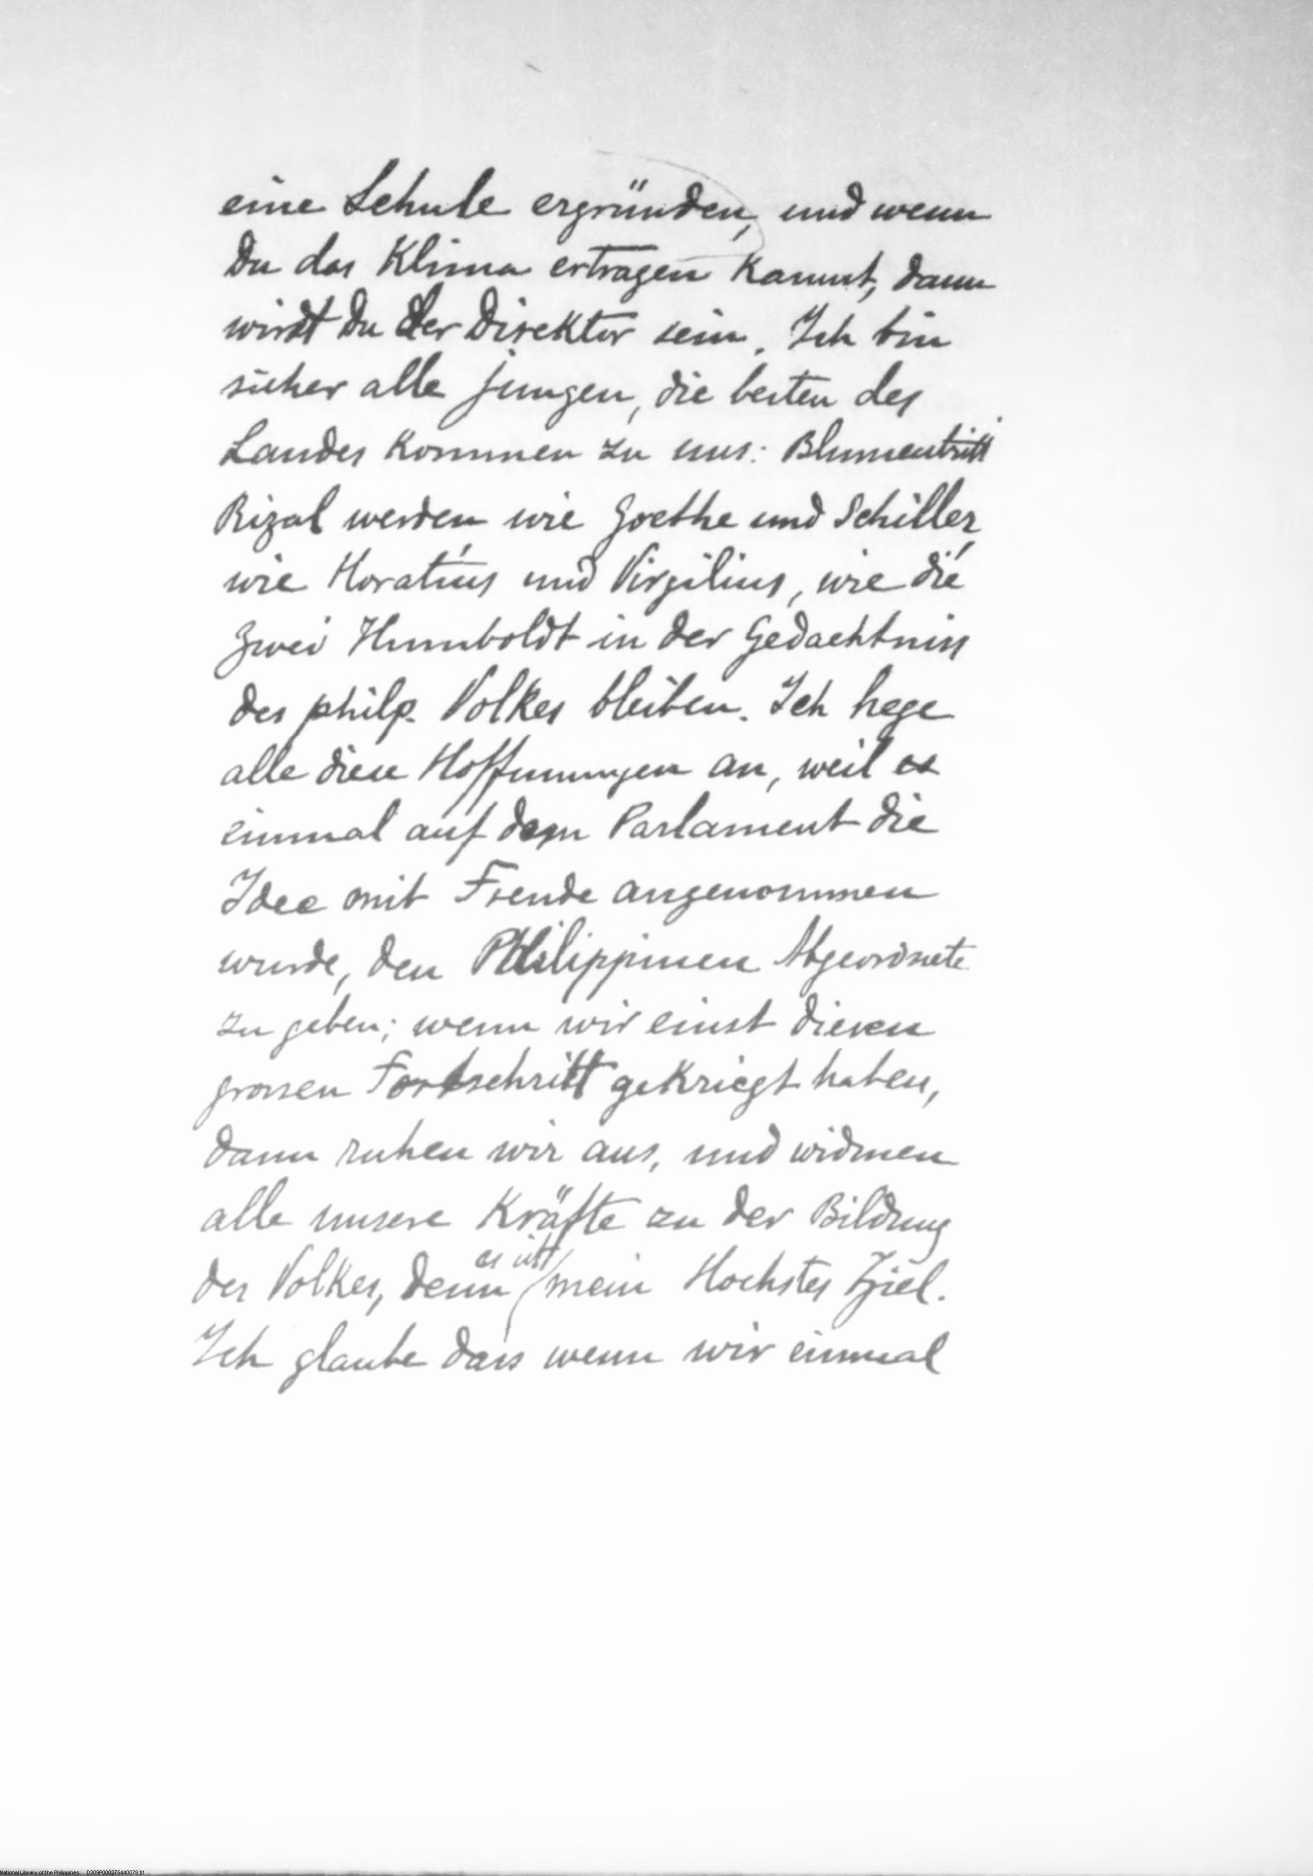 eine Schule ergründen, und wenn
Du das Klima ertragen kannst, dann
wirdt Du der Direktor sein. Ich bin
sicher alle jungen, die besten des
Landes kommen zu uns: Blumentritt
Rizal werden wie Goethe und Schiller,
wie Horatius und Virgilius, wie die
zwei Humboldt in der Gedachtniss
des philp. Volkes bleiben. Ich hege
alle diese Hoffnungen an, weil es
einmal auf dem Parlament die
Idee mit Freude angenommen
wurde, den Philippinen Abgeordnete
zu geben; wenn wir einst diesen
grossen Fortschritt gekriegt haben,
dann ruhen wir aus, und widmen
alle unsere Kräfte zu der Bildung
des Volkes, denn es ist mein Hochstes Ziel.
Ich glaube dass wenn wir einmal
National Library of the Philippines